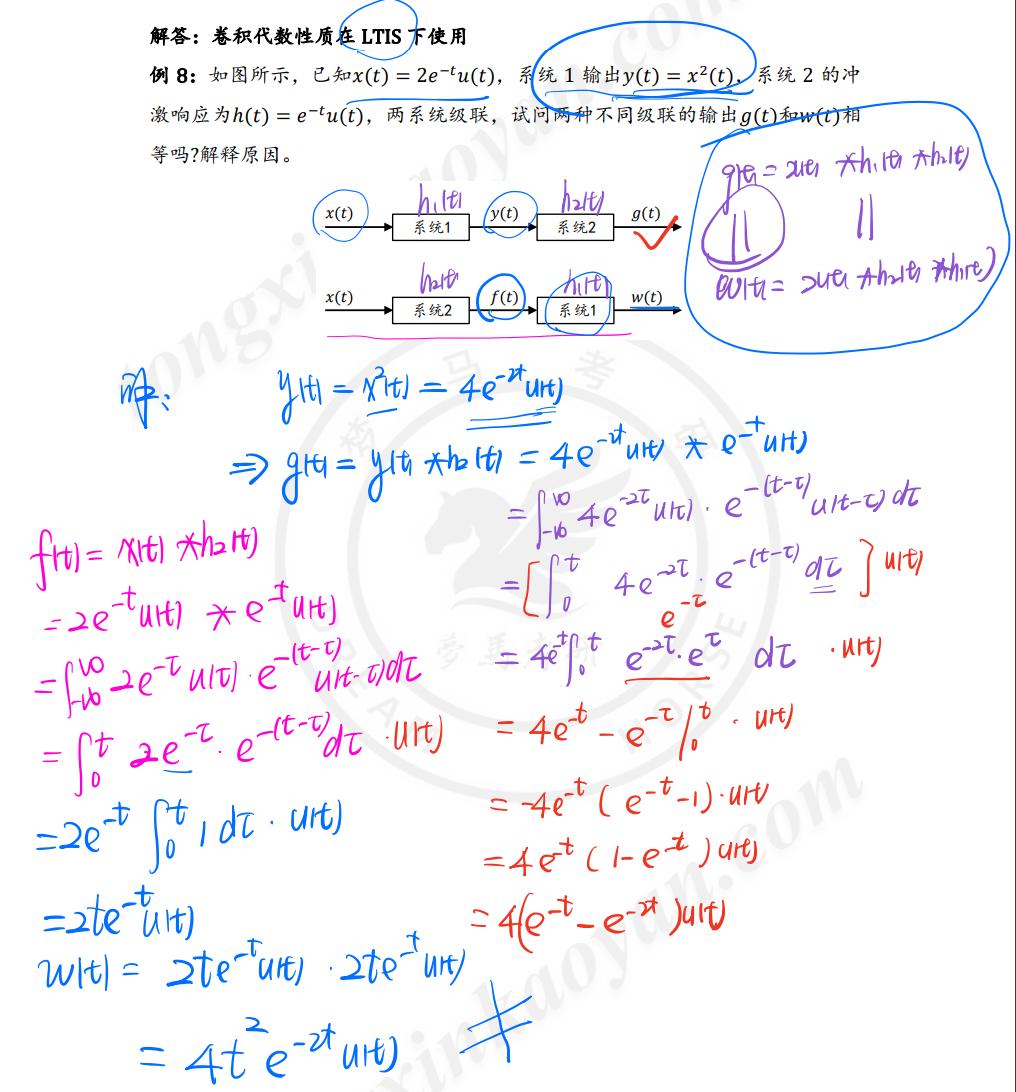 解答：卷积代数性质在 LTIS 下使用
例 8：如图所示，已知x(t) = 2e⁻ᵗu(t)，系统 1 输出y(t) = x²(t)，系统 2 的冲
激响应为h(t) = e⁻ᵗu(t)，两系统级联，试问两种不同级联的输出g(t)和w(t)相
等吗?解释原因。
g(t) = x(t) * h₁(t) * h₂(t)
||　||
w(t) = x(t) * h₂(t) * h₁(t)
h₁(t)　h₂(t)
x(t)　系统1　y(t)　系统2　g(t)
h₂(t)　h₁(t)
x(t)　系统2　f(t)　系统1　w(t)
解：　y(t) = x²(t) = 4e^{-2t}u(t)
⇒ g(t) = y(t) * h₂(t) = 4e^{-2t}u(t) * e^{-t}u(t)
= ∫_{-∞}^{∞} 4e^{-2τ}u(τ) · e^{-(t-τ)}u(t-τ)dτ
= [∫_0^t 4e^{-2τ} · e^{-(t-τ)}dτ]u(t)
e^{-τ}
= 4e^{-t}∫_0^t e^{-2τ} · e^{τ} dτ · u(t)
= 4e^{-t} - e^{-τ}|_0^t · u(t)
= -4e^{-t}(e^{-t}-1) · u(t)
= 4e^{-t}(1-e^{-t})u(t)
= 4(e^{-t} - e^{-2t})u(t)
f(t) = x(t) * h₂(t)
= 2e^{-t}u(t) * e^{-t}u(t)
= ∫_{-∞}^{∞} 2e^{-τ}u(τ) · e^{-(t-τ)}u(t-τ)dτ
= ∫_0^t 2e^{-τ} · e^{-(t-τ)}dτ · u(t)
= 2e^{-t}∫_0^t 1dτ · u(t)
= 2te^{-t}u(t)
w(t) = 2te^{-t}u(t) · 2te^{-t}u(t)
= 4t²e^{-2t}u(t)　≠